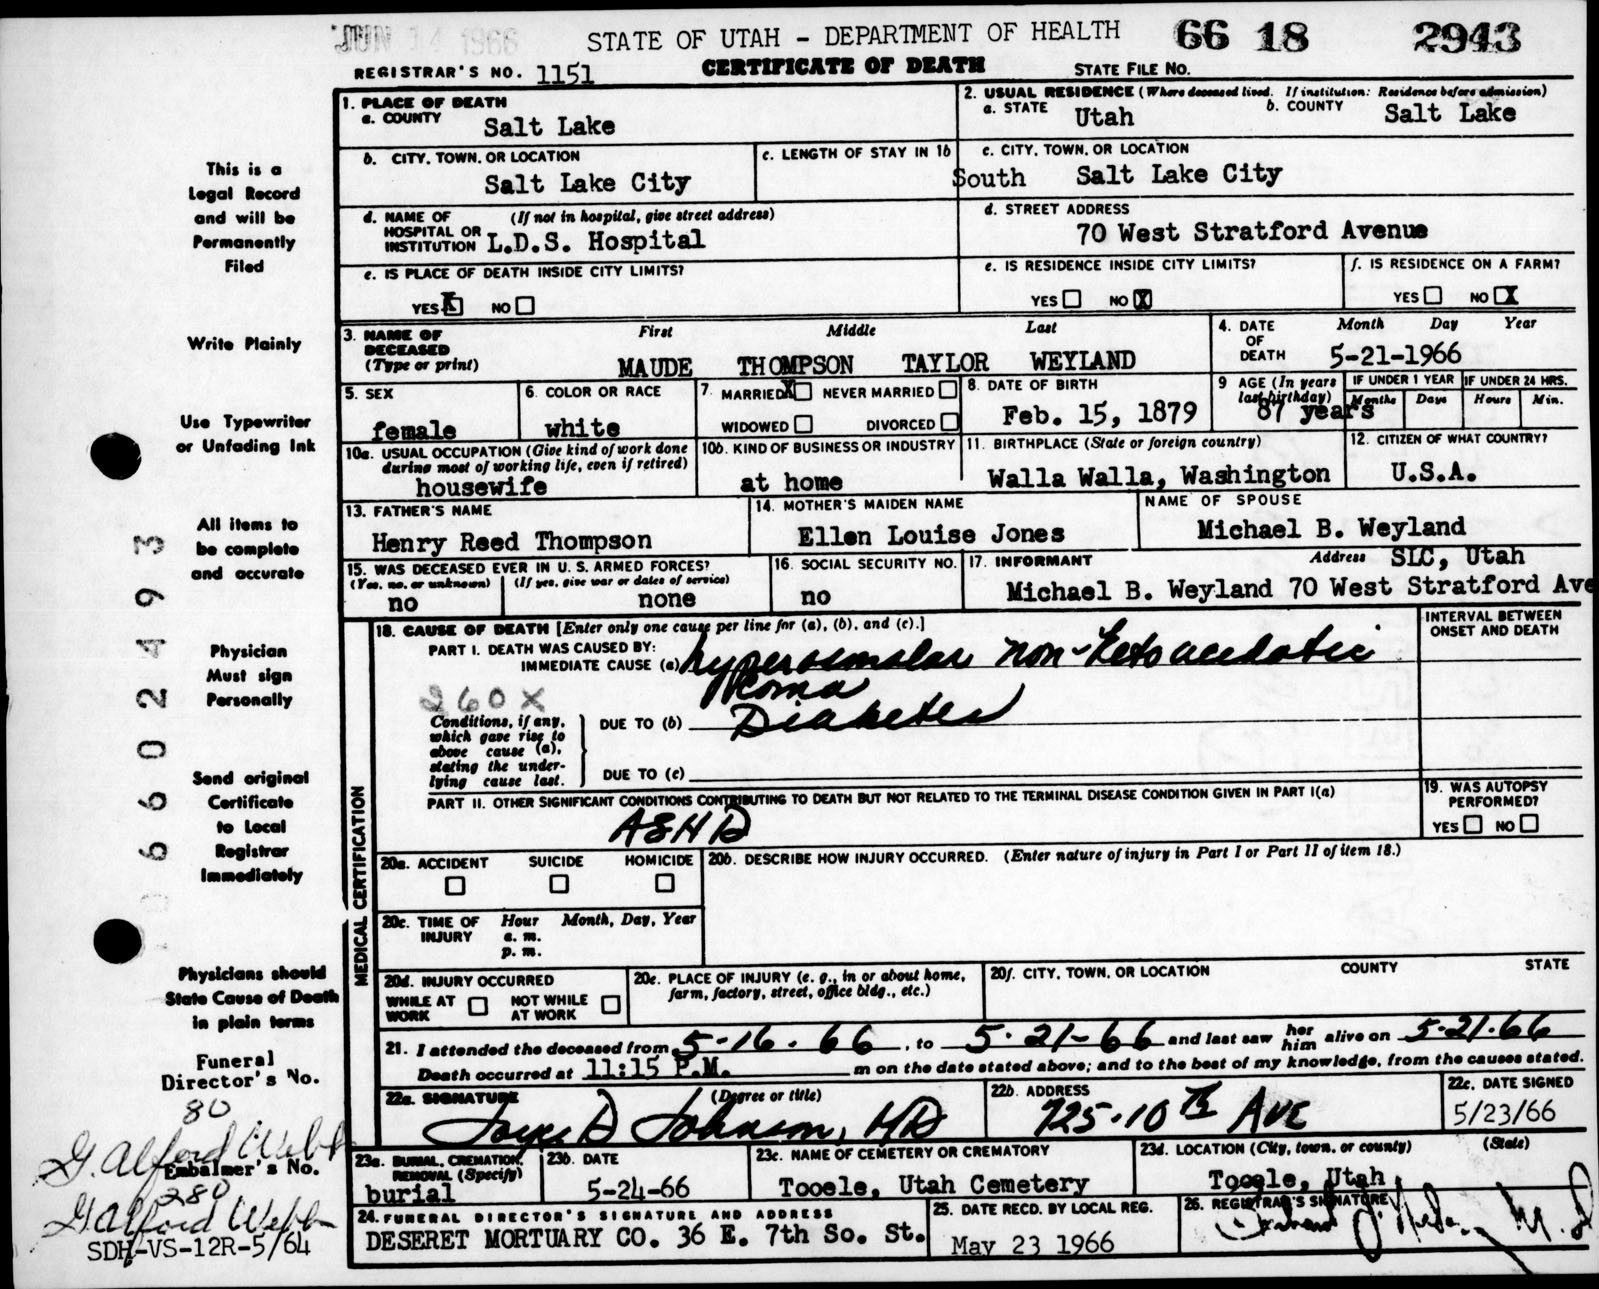 JUN 14 1966
STATE OF UTAH - DEPARTMENT OF HEALTH
66 18 2943
REGISTRAR'S NO. 1151
CERTIFICATE OF DEATH
STATE FILE NO.
1. PLACE OF DEATH
a. COUNTY
Salt Lake
2. USUAL RESIDENCE (Where deceased lived. If institution: Residence before admission)
a. STATE Utah
b. COUNTY Salt Lake
b. CITY, TOWN, OR LOCATION
Salt Lake City
c. LENGTH OF STAY IN 1b
c. CITY, TOWN, OR LOCATION
South Salt Lake City
d. NAME OF HOSPITAL OR INSTITUTION (If not in hospital, give street address)
L.D.S. Hospital
d. STREET ADDRESS
70 West Stratford Avenue
e. IS PLACE OF DEATH INSIDE CITY LIMITS?
YES X NO
e. IS RESIDENCE INSIDE CITY LIMITS?
YES NO X
f. IS RESIDENCE ON A FARM?
YES NO X
3. NAME OF DECEASED (Type or print)
First Middle Last
MAUDE THOMPSON TAYLOR WEYLAND
4. DATE OF DEATH
Month Day Year
5-21-1966
5. SEX
female
6. COLOR OR RACE
white
7. MARRIED X NEVER MARRIED
WIDOWED DIVORCED
8. DATE OF BIRTH
Feb. 15, 1879
9 AGE (In years last birthday)
87 years
IF UNDER 1 YEAR
Months Days
IF UNDER 24 HRS.
Hours Min.
10a. USUAL OCCUPATION (Give kind of work done during most of working life, even if retired)
housewife
10b. KIND OF BUSINESS OR INDUSTRY
at home
11. BIRTHPLACE (State or foreign country)
Walla Walla, Washington
12. CITIZEN OF WHAT COUNTRY?
U.S.A.
13. FATHER'S NAME
Henry Reed Thompson
14. MOTHER'S MAIDEN NAME
Ellen Louise Jones
NAME OF SPOUSE
Michael B. Weyland
15. WAS DECEASED EVER IN U. S. ARMED FORCES?
(Yes, no, or unknown) (If yes, give war or dates of service)
no none
16. SOCIAL SECURITY NO.
no
17. INFORMANT Address SLC, Utah
Michael B. Weyland 70 West Stratford Ave
MEDICAL CERTIFICATION
18. CAUSE OF DEATH [Enter only one cause per line for (a), (b), and (c).]
INTERVAL BETWEEN ONSET AND DEATH
PART I. DEATH WAS CAUSED BY:
IMMEDIATE CAUSE (a) hyperosmolar non-ketoacidotic
coma
260X
Conditions, if any, which gave rise to above cause (a), stating the underlying cause last.
DUE TO (b) Diabetes
DUE TO (c)
PART II. OTHER SIGNIFICANT CONDITIONS CONTRIBUTING TO DEATH BUT NOT RELATED TO THE TERMINAL DISEASE CONDITION GIVEN IN PART I(a)
ASHD
19. WAS AUTOPSY PERFORMED?
YES NO
20a. ACCIDENT SUICIDE HOMICIDE
20b. DESCRIBE HOW INJURY OCCURRED. (Enter nature of injury in Part I or Part II of item 18.)
20c. TIME OF INJURY
Hour Month, Day, Year
a. m.
p. m.
20d. INJURY OCCURRED
WHILE AT WORK NOT WHILE AT WORK
20e. PLACE OF INJURY (e. g., in or about home, farm, factory, street, office bldg., etc.)
20f. CITY, TOWN, OR LOCATION COUNTY STATE
21. I attended the deceased from 5-16-66, to 5-21-66 and last saw her him alive on 5-21-66
Death occurred at 11:15 P.M. m on the date stated above; and to the best of my knowledge, from the causes stated.
22a. SIGNATURE (Degree or title)
Joyce D Johnson, MD
22b. ADDRESS
725-10th AVE
22c. DATE SIGNED
5/23/66
23a. BURIAL, CREMATION, REMOVAL (Specify)
burial
23b. DATE
5-24-66
23c. NAME OF CEMETERY OR CREMATORY
Tooele, Utah Cemetery
23d. LOCATION (City, town, or county) (State)
Tooele, Utah
24. FUNERAL DIRECTOR'S SIGNATURE AND ADDRESS
DESERET MORTUARY CO. 36 E. 7th So. St.
25. DATE RECD. BY LOCAL REG.
May 23 1966
26. REGISTRAR'S SIGNATURE
This is a
Legal Record
and will be
Permanently
Filed
Write Plainly
Use Typewriter
or Unfading Ink
All items to
be complete
and accurate
Physician
Must sign
Personally
Send original
Certificate
to Local
Registrar
Immediately
Physicians should
State Cause of Death
in plain terms
Funeral
Director's No.
80
G. Alford Webb
Embalmer's No.
280
G Alford Webb
SDH-VS-12R-5/64
06602493